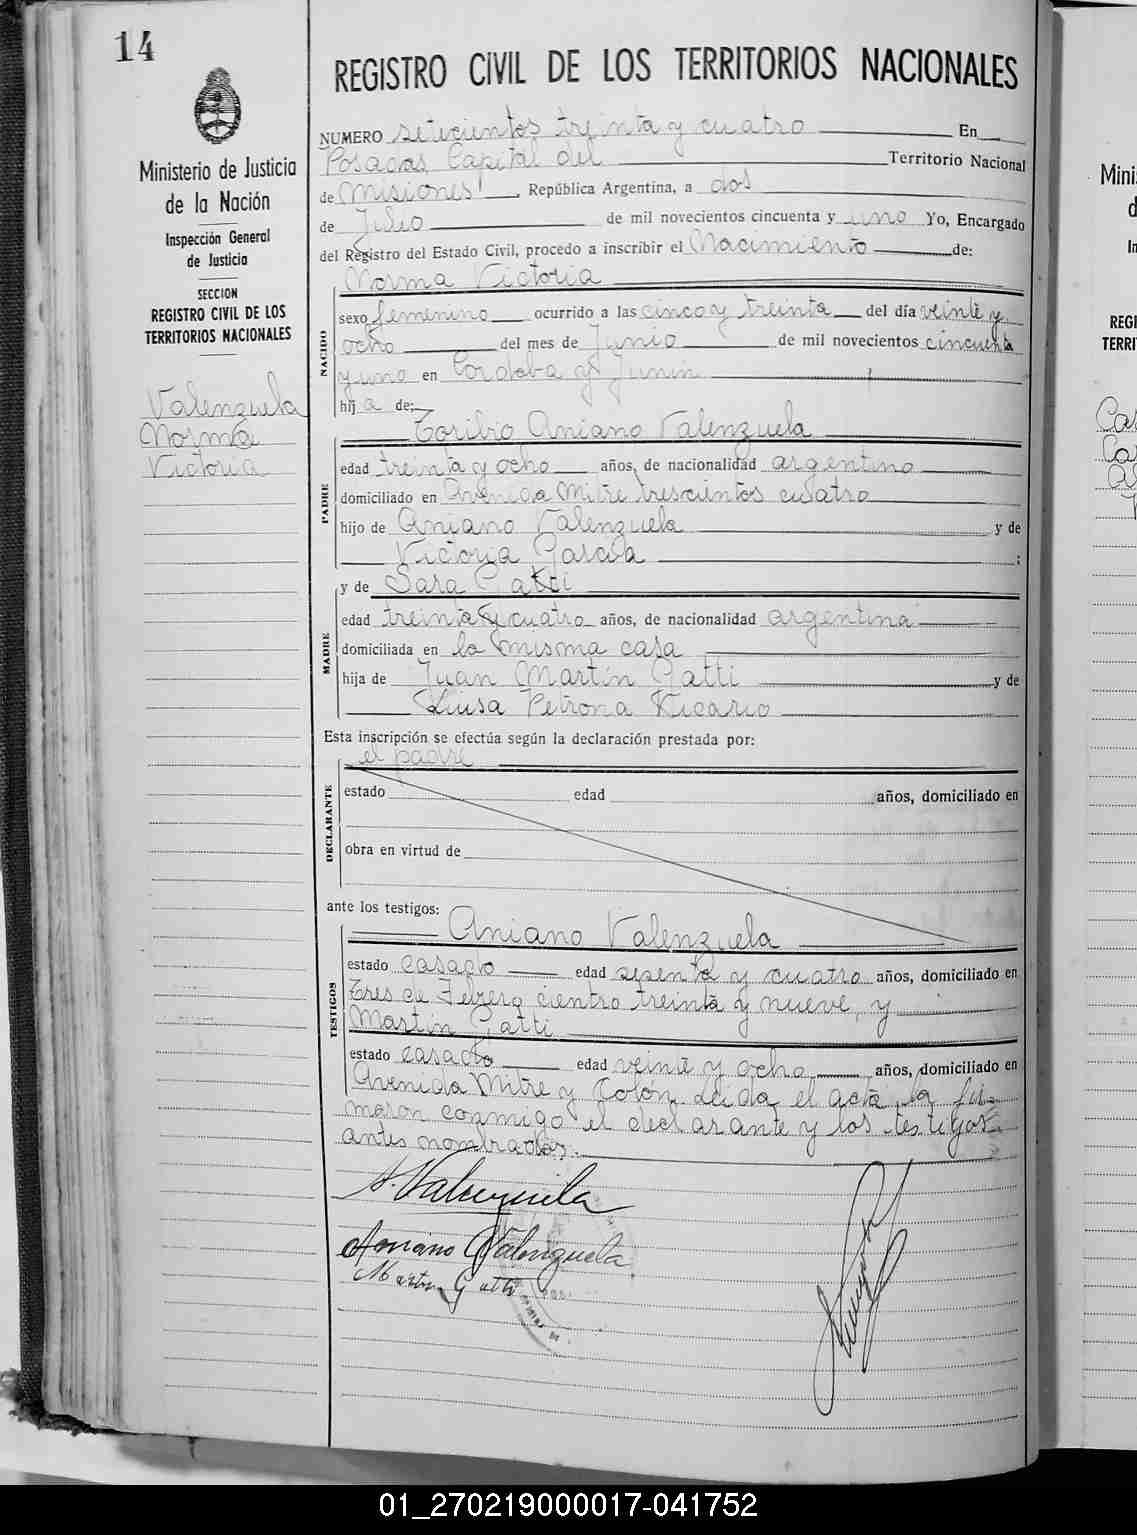 14
REGISTRO CIVIL DE LOS TERRITORIOS NACIONALES
Ministerio de Justicia
de la Nación
Inspección General
de Justicia
SECCION
REGISTRO CIVIL DE LOS
TERRITORIOS NACIONALES
Valenzuela
Norma
Victoria
NUMERO setecientos treinta y cuatro En
Posadas, Capital del Territorio Nacional
de Misiones, República Argentina, a dos
de Julio de mil novecientos cincuenta y uno Yo, Encargado
del Registro del Estado Civil, procedo a inscribir el Nacimiento de:
Norma Victoria
NACIDO
sexo femenino ocurrido a las cinco y treinta del día veinte y
ocho del mes de Junio de mil novecientos cincuenta
y uno en Cordoba y Junin
hij a de:
Toribio Aniano Valenzuela
PADRE
edad treinta y ocho años, de nacionalidad argentino
domiciliado en Avenida Mitre trescientos cuatro
hijo de Aniano Valenzuela y de
Victoria García ;
y de Sara Gatti
MADRE
edad treinta y cuatro años, de nacionalidad argentina
domiciliada en la misma casa
hija de Juan Martín Gatti y de
Luisa Petrona Vicario
Esta inscripción se efectúa según la declaración prestada por:
el padre
DECLARANTE
estado edad años, domiciliado en
obra en virtud de
ante los testigos:
Aniano Valenzuela
TESTIGOS
estado casado edad sesenta y cuatro años, domiciliado en
Tres de Febrero ciento treinta y nueve, y
Martín Gatti
estado casado edad veinte y ocho años, domiciliado en
Avenida Mitre y Colón. Leída el acta, la fir-
maron conmigo el declarante y los testigos
antes nombrados.
Valenzuela
Aniano Valenzuela
Martin Gatti
Mini
REGI
TERRI
01_270219000017-041752